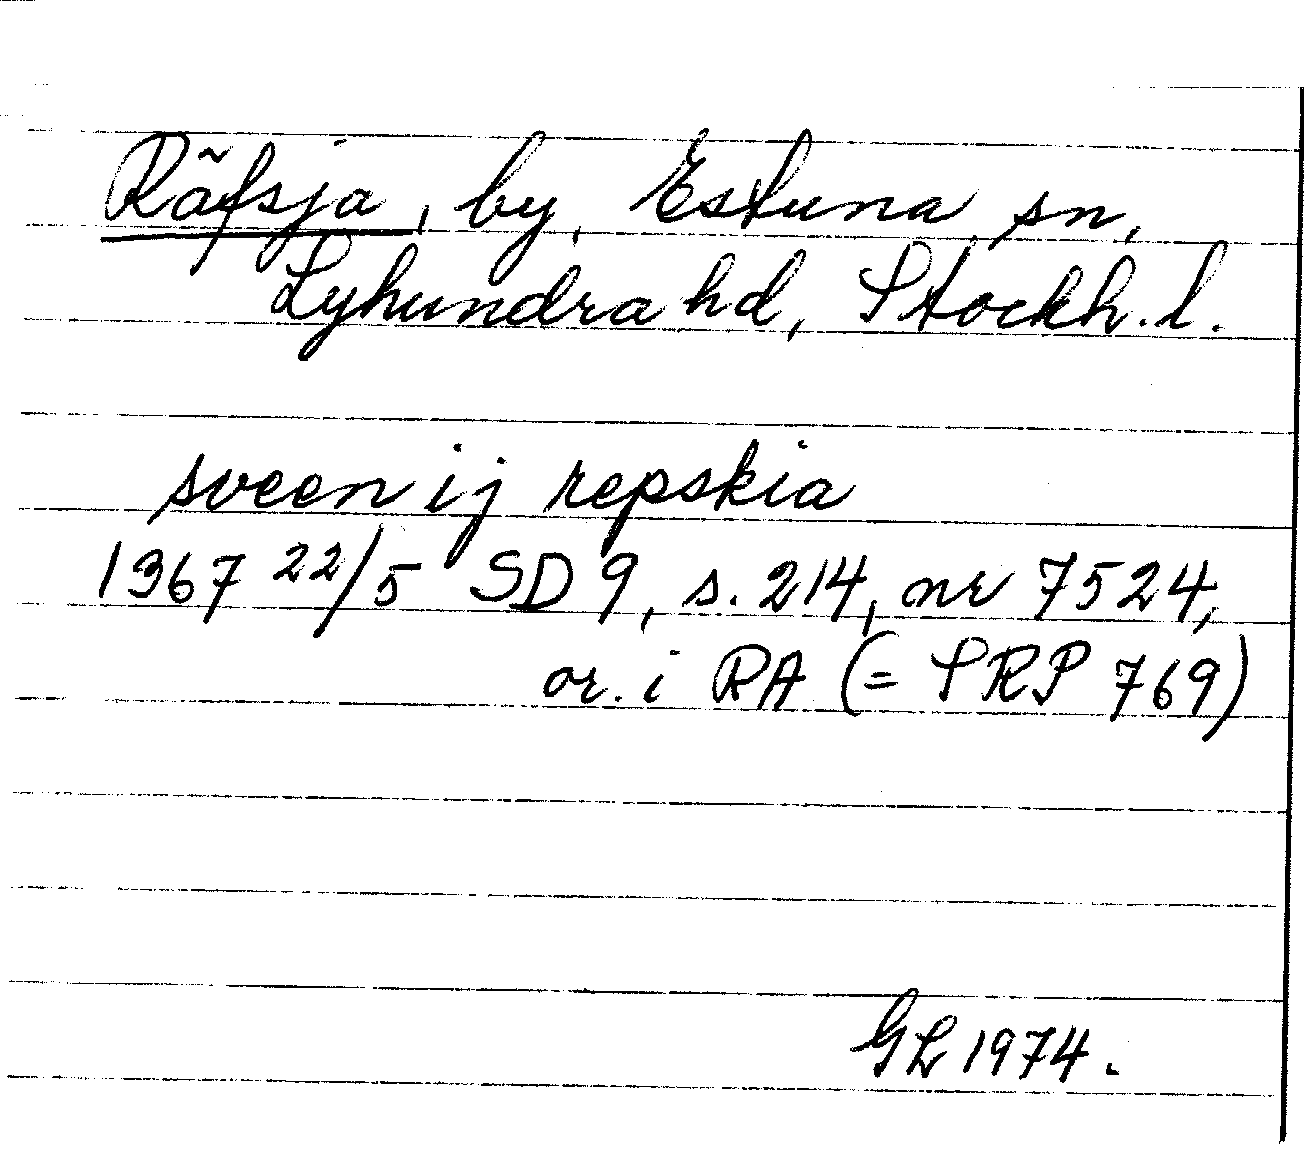 Räfsja, by, Estuna sn,
Lyhundra hd, Stockh. l.
sveen ij repskia
1367 22/5 SD 9, s. 214, nr 7524,
or. i RA (= SRP 769)
GL 1974.